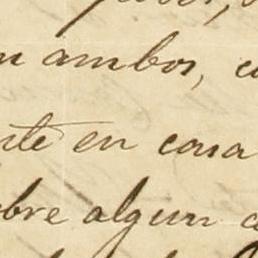 n ambos, c
nte en casa
obre algun a